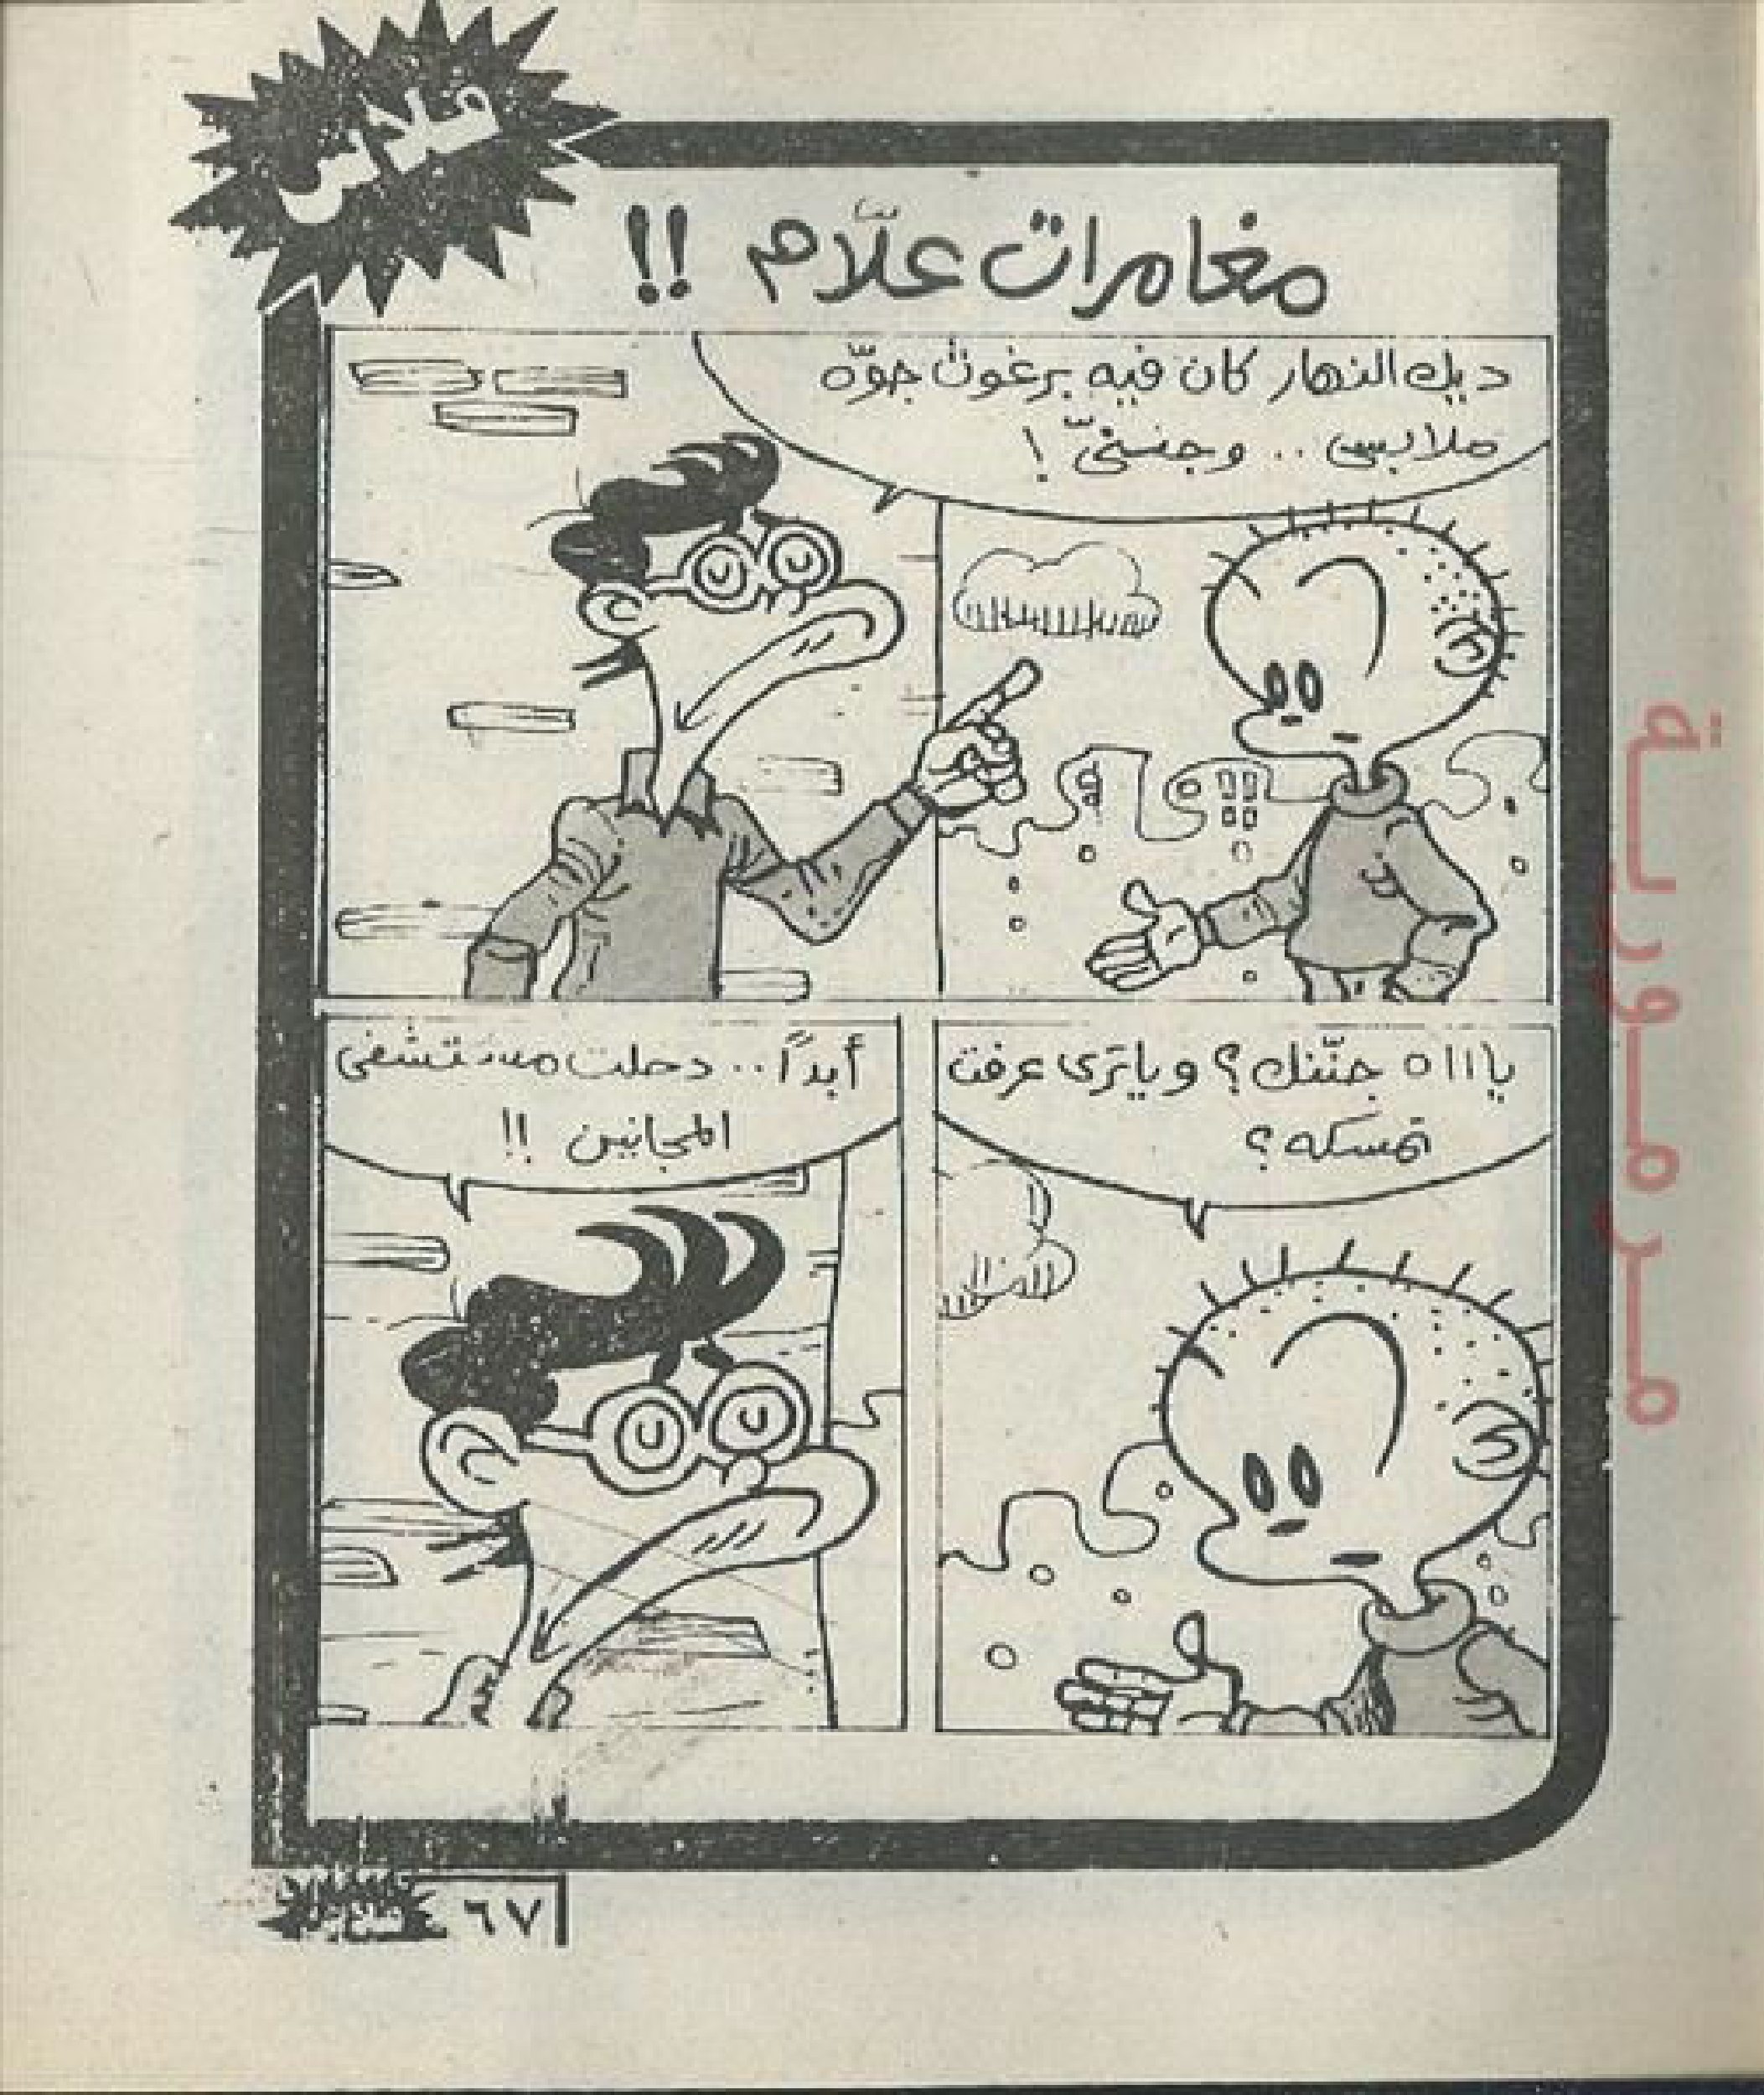 فلاش
مغامرات علّام !!
ديك النهار كان فيه برغوث جوّه
ملابسى .. وجننىّ !
ياااه جنّنك ؟ وياترى عرفت
تمسكه ؟
أبداً .. دخلت مستشفى
المجانين !!
٦٧